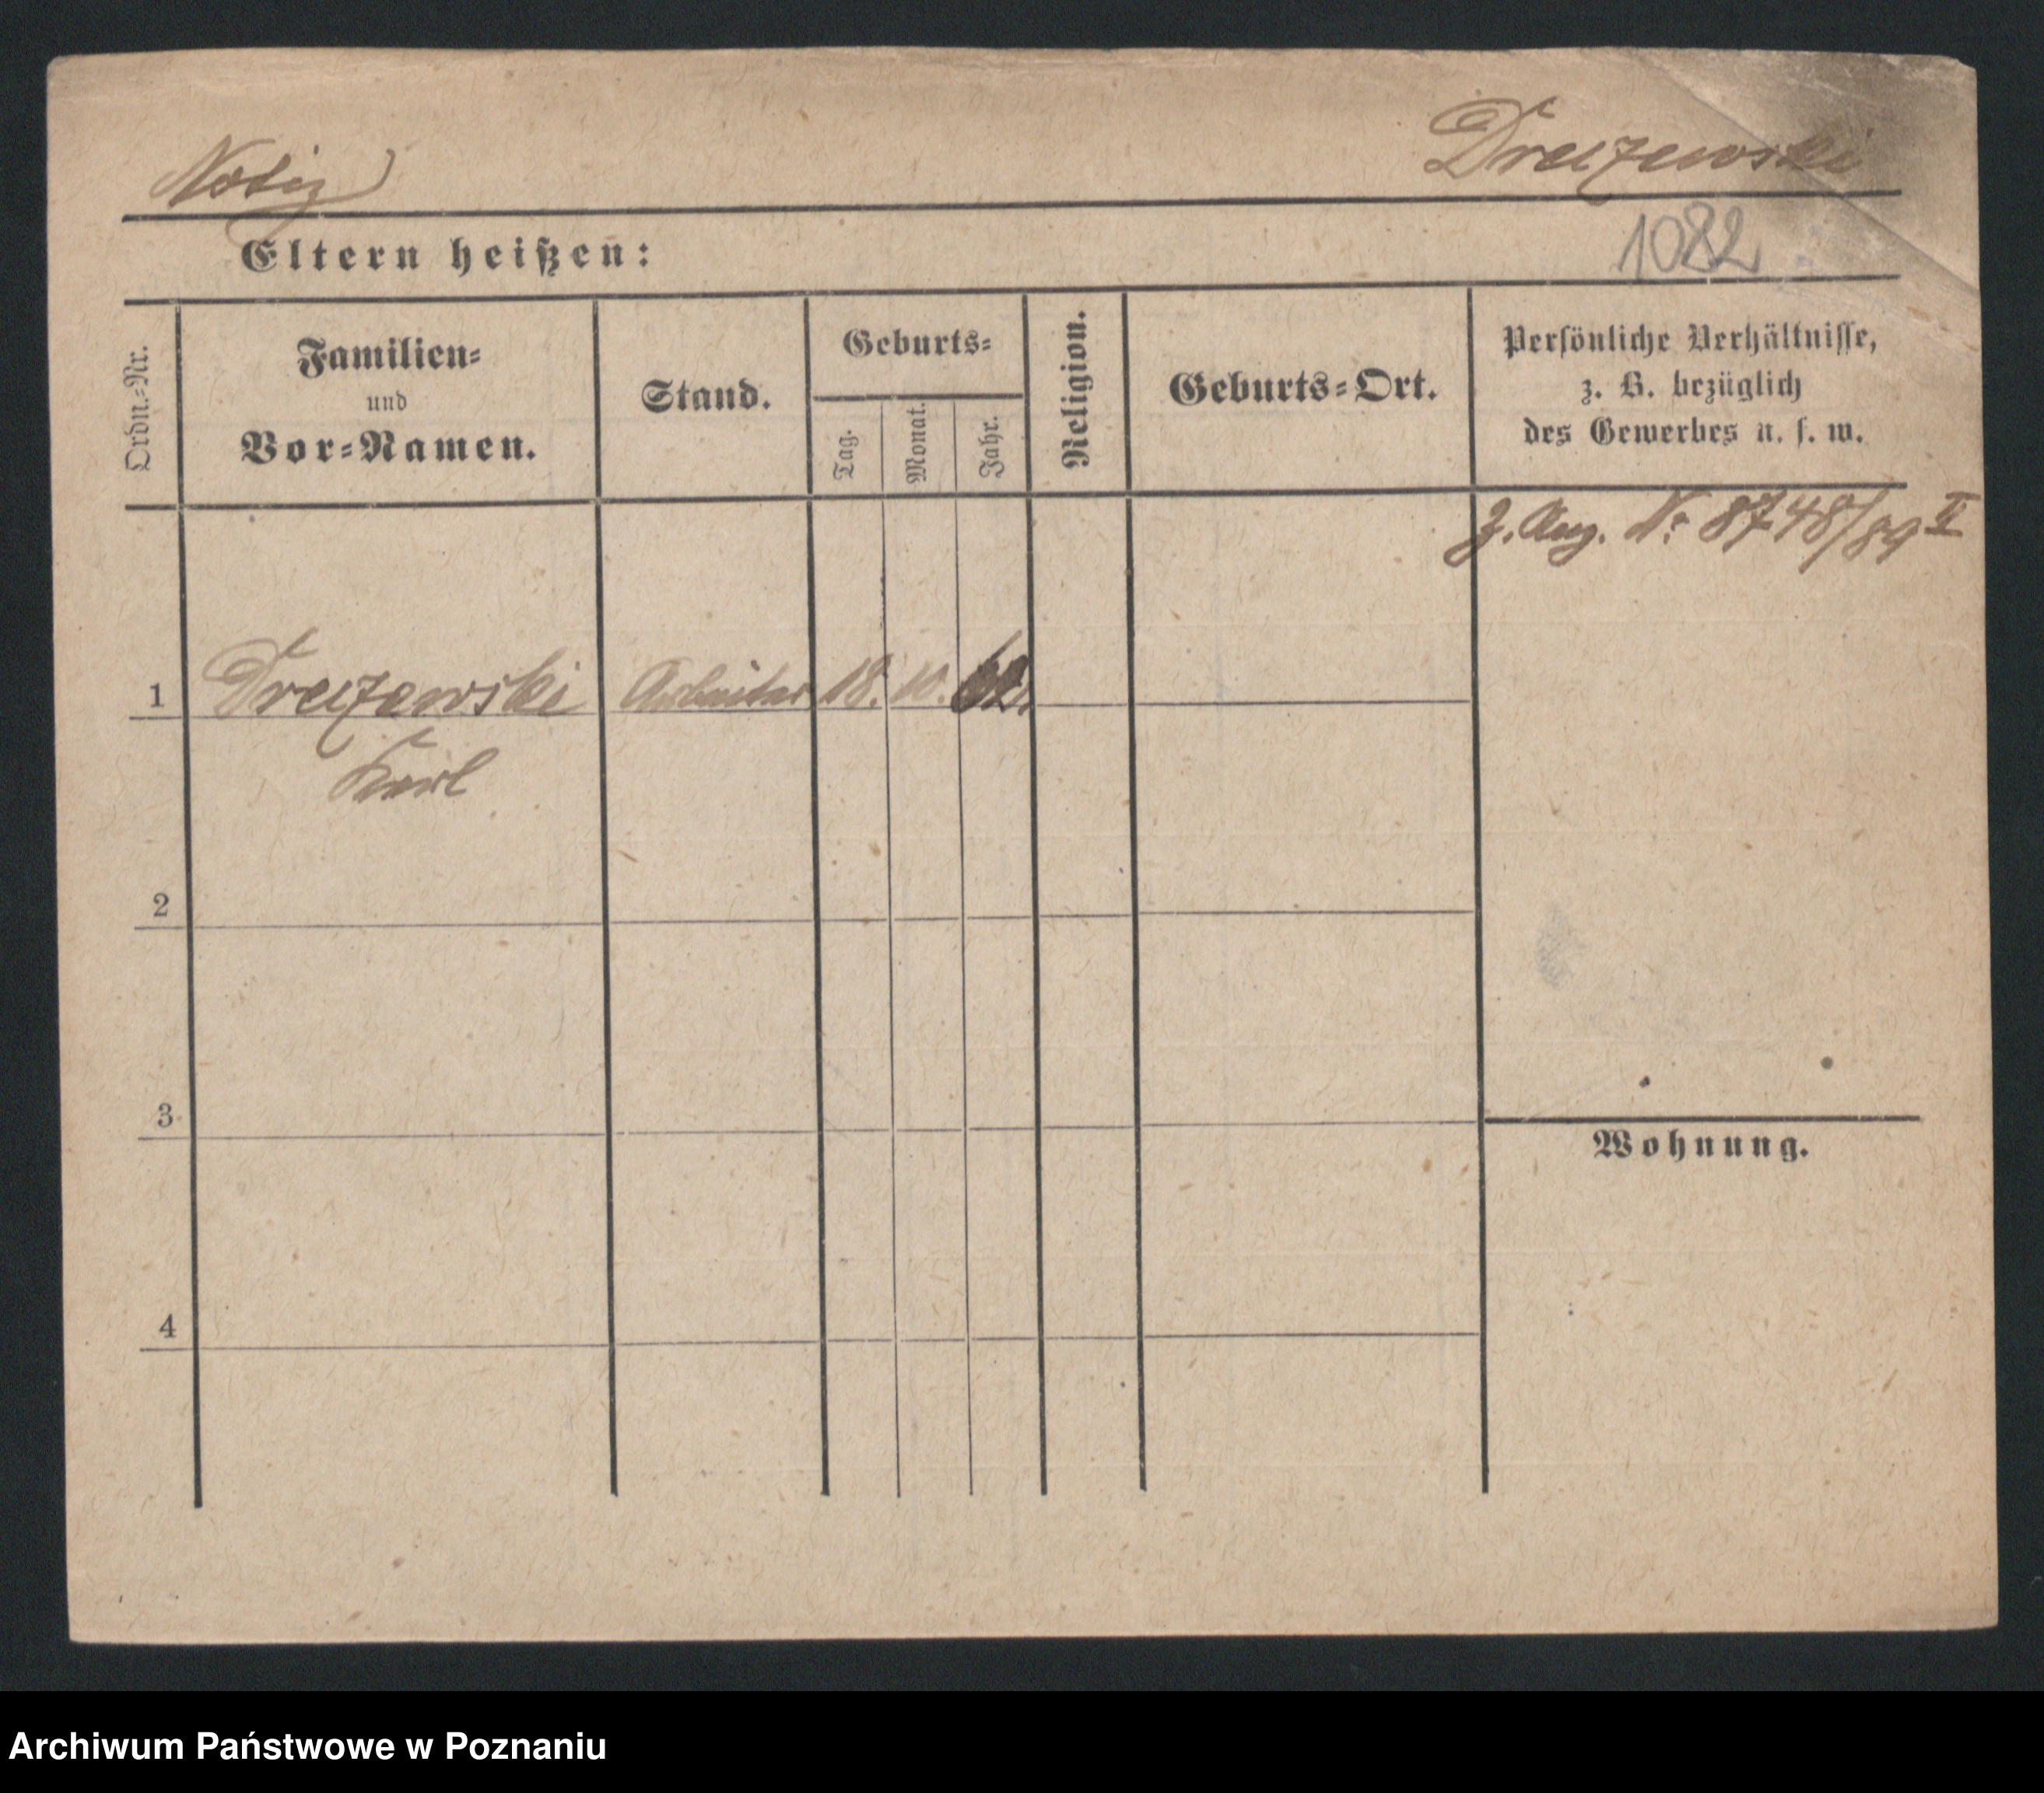 Notiz
Dreizewski
Eltern heißen:
1082
Ordn.-Nr.
Familien-
und
Vor-Namen.
Stand.
Geburts-
Tag.
Monat.
Jahr.
Religion.
Geburts-Ort.
Persönliche Verhältnisse,
z. B. bezüglich
des Gewerbes u. s. w.
Z. Ang. No 8748/89 II
1 Dreizewski Arbeiter 18. 10. 62.
Karl
2
3
Wohnung.
4
Archiwum Państwowe w Poznaniu